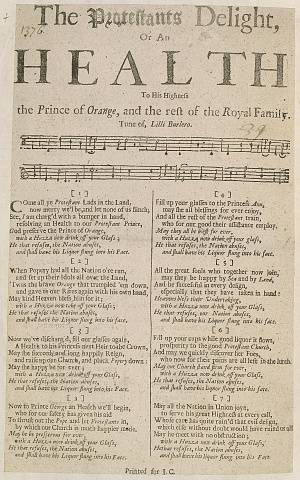 The Protestants Delight,
Or An
HEALTH
To His Highness
the Prince of Orange, and the rest of the Royal Family.
Tune of, Lilli Burlero.
[1]
Come all ye Protestant Lads in the Land,
now merry we'll be, and let none of us flinch;
See, I am charg'd with a bumper in hand,
resolving an Health to our Protestant Prince;
God preserve the Prince of Orange,
with a Hozza now drink off your Glass;
He that refuses, the Nation abuses,
and shall have his Liquor flung into his Face.
[2]
When Popery had all the Nation o're run,
and set up their Idols all over the Land,
'twas this brave Orange that trampled 'em down,
and gave us our Rights again with his own hand,
May kind Heaven bless him for it;
with a Hozza now drink off your Glass,
He that refuses, the Nation abuses,
and shall have his Liquor flung into his Face.
[3]
Now we've these in hand, fill our glasses again,
A Health to his
May
and raise up our Church, and place Popery down:
May she happy be for ever;
with a Hozza now drink off your Glass,
He that refuses, the Nation abuses,
and shall have his Liquor flung into his Face.
Now to Prince George in Health we'll begin,
who for our safety has given his aid
To thrust out the Pope and his Protestants in,
by which our Church is much happier made.
May he be prosperous for ever;
with a Hozza now drink off your Glass,
He that refuses, the Nation abuses,
and shall have his Liquor flung into his Face.
Fill up your glasses to the Princess Ann,
may she all blessings for ever enjoy,
And all the rest of the Protestant train,
who for our good their assistance employ,
May they all be blest for ever,
with a Hozza now drink off your glass,
He that refuses, the Nation abuses,
and shall have his Liquor flung into his Face.
[5]
All the great souls who together now join,
may they be happy by Sea and by Land,
And be successful in every design,
especially that they have taken in hand:
Heavens bless their Undertakings;
with a Hozza now drink off your Glass,
He that refuses, our Nation abuses,
and shall have his Liquor flung into his Face.
[6]
Fill up your cups while good liquor is flown,
prosperity to the good Protestant Church,
And may we quickly discover her Foes,
who now for their pains are all left in the lurch.
May our Church stand firm for ever,
with a Hozza now drink off your Glass,
He that refuses, the Nation abuses,
and shall have his Liquor flung into his Face.
[7]
May all the Nation in Union joyn,
to serve his great Highness at every call,
Whose care has quite ruin'd that evil design,
which else without doubt would have ruin'd us all
May he meet with no obstruction;
with a Hozza now drink off your Glass,
He that refuses, the Nation abuses,
and shall have his liquor flung into his Face.
Printed for J. C.